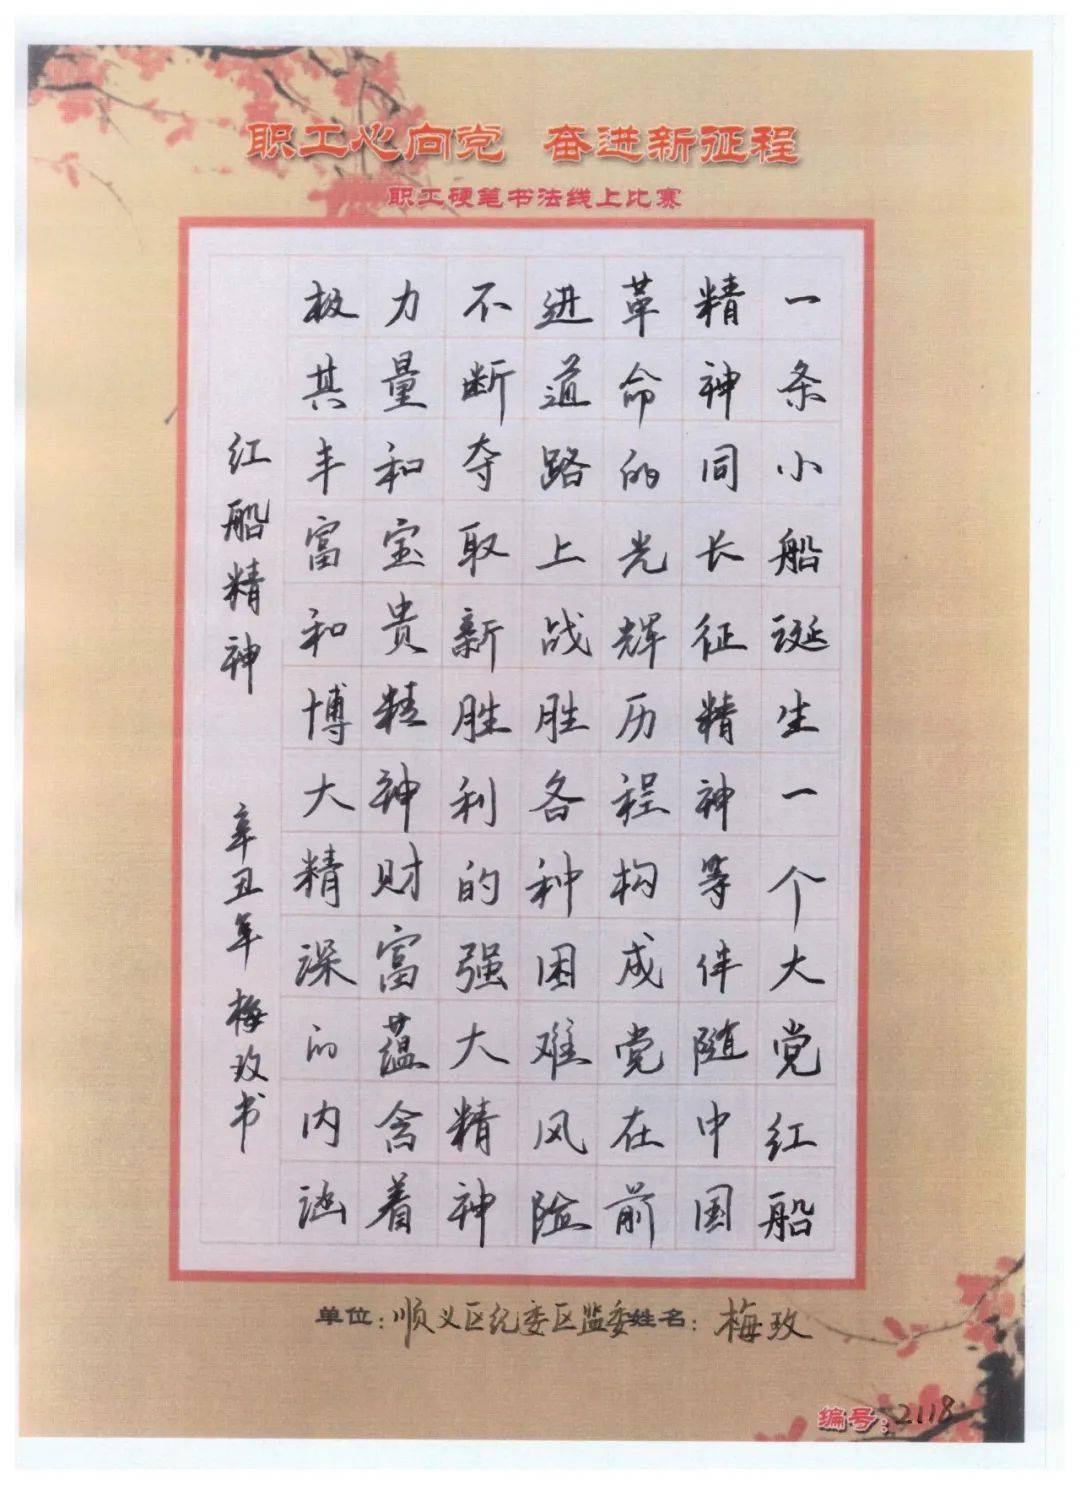 职工心向党 奋进新征程
职工硬笔书法线上比赛
一条小船诞生一个大党红船
精神同长征精神等伴随中国
革命的光辉历程构成党在前
进道路上战胜各种困难风险
不断夺取新胜利的强大精神
力量和宝贵精神财富蕴含着
极其丰富和博大精深的内涵
红船精神 辛丑年 梅玫书
单位：顺义区纪委区监委姓名：梅玫
编号：2118